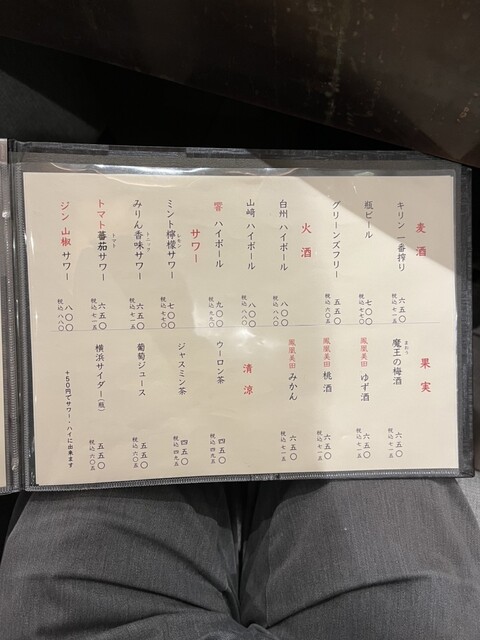 麦酒
キリン 一番搾り 六五〇
税込七一五
瓶ビール 七〇〇
税込七七〇
グリーンズフリー 五五〇
税込六〇五
火酒
白州 ハイボール 八〇〇
税込八八〇
山崎 ハイボール 八〇〇
税込八八〇
響 ハイボール 九〇〇
税込九九〇
サワー
ミント檸檬サワー 七〇〇
レモン
税込七七〇
みりん香味サワー 六五〇
トニック
税込七一五
トマト蕃茄サワー 六五〇
トマト
税込七一五
ジン 山椒サワー 八〇〇
税込八八〇
果実
魔王の梅酒 六五〇
まおう
税込七一五
鳳凰美田 ゆず酒 六五〇
税込七一五
鳳凰美田 桃酒 六五〇
税込七一五
鳳凰美田 みかん 六五〇
税込七一五
清涼
ウーロン茶 四五〇
税込四九五
ジャスミン茶 四五〇
税込四九五
葡萄ジュース 五五〇
税込六〇五
横浜サイダー(瓶) 五五〇
税込六〇五
+50円でサワー・ハイに出来ます